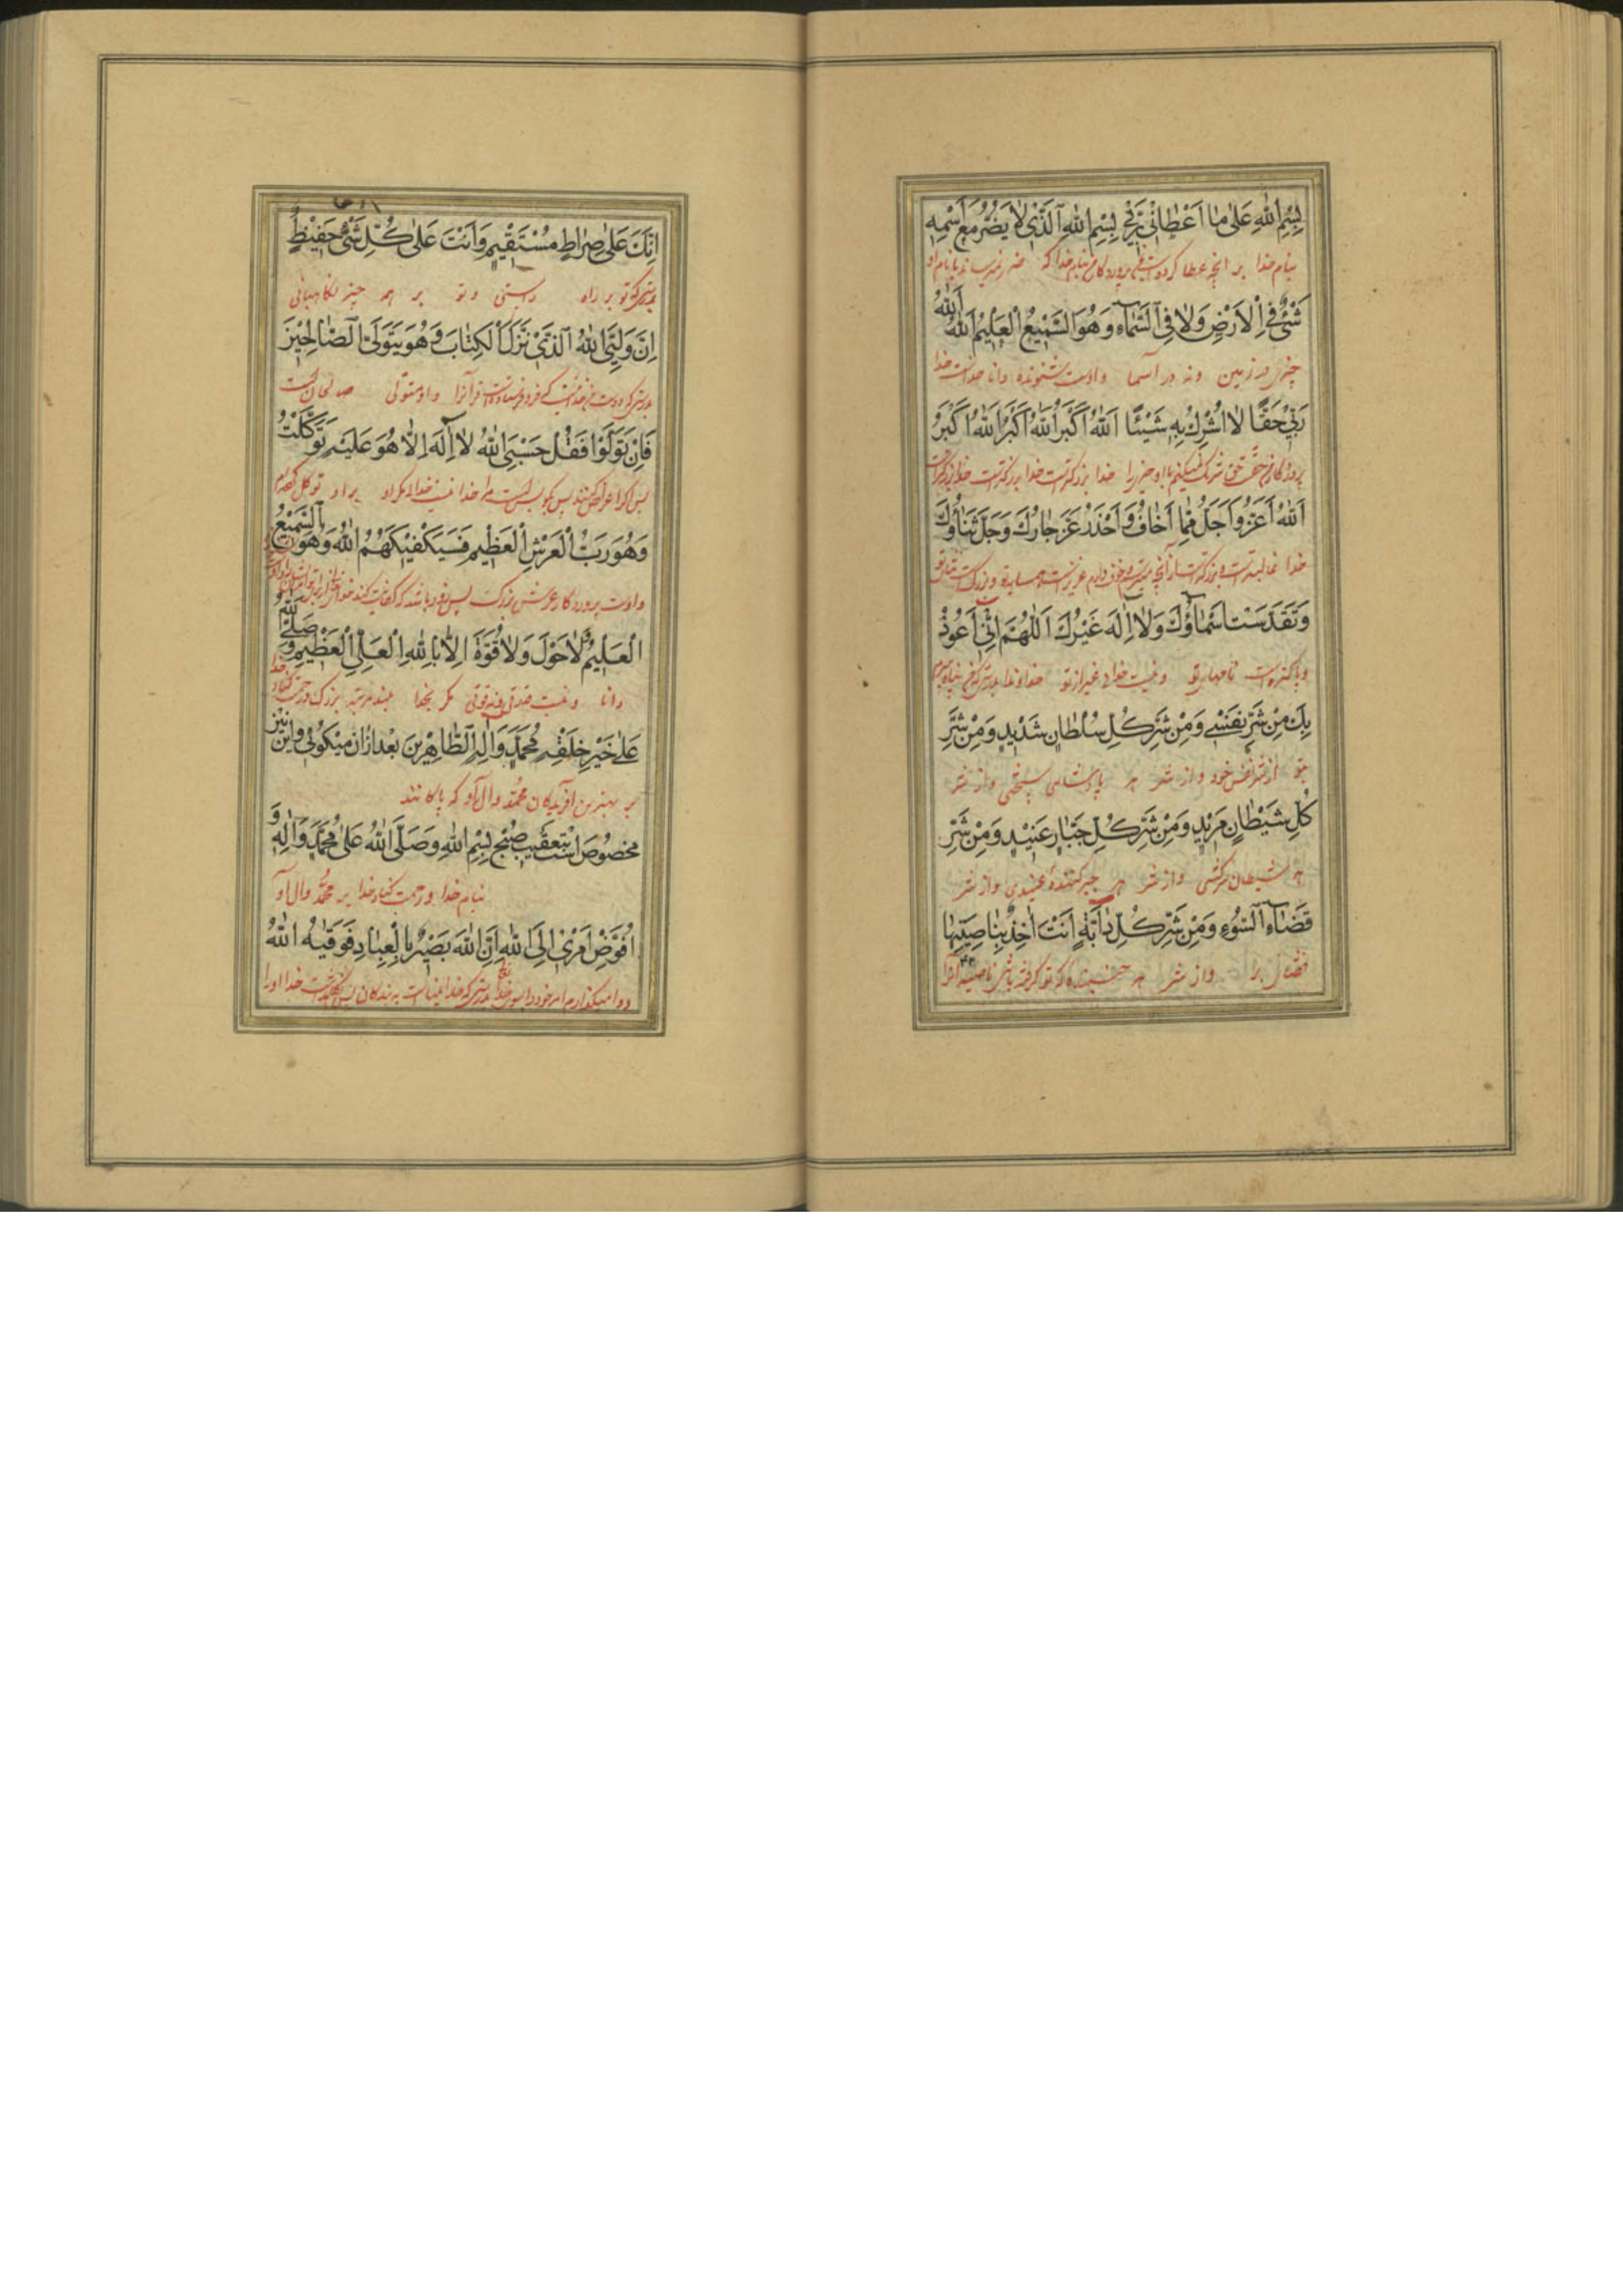 بِسْمِ اللهِ عَلىٰ مٰا اَعْطٰانٖي رَبّٖي بِسْمِ اللهِ الَّذٖي لٰا يَضُرُّ مَعَ اسْمِهٖ
بنام خدا بر آنچه عطا کرده است پروردگار من بنام خدا که ضرر نمیرساند با نام او
شَيْءٌ فِي الْاَرْضِ وَلٰا فِي السَّمٰآءِ وَهُوَ السَّمٖيعُ الْعَلٖيمُ اَللهُ اَللهُ
چیزی در زمین و نه در آسمان و اوست شنونده دانا خداست خدا
رَبّٖي حَقًّا لٰا اُشْرِكُ بِهٖ شَيْئًا اَللهُ اَكْبَرُ اَللهُ اَكْبَرُ اَللهُ اَكْبَرُ
خدا بزرگتر است خدا بزرگتر است خدا بزرگتر است
اَللهُ اَعَزُّ وَاَجَلُّ مِمّٰا اَخٰافُ وَاَحْذَرُ عَزَّ جٰارُكَ وَجَلَّ ثَنٰاؤُكَ
خدا غالبتر است و بزرگتر است از آنچه
وَتَقَدَّسَتْ اَسْمٰاؤُكَ وَلٰا اِلٰهَ غَيْرُكَ اَللّٰهُمَّ اِنّٖي اَعُوذُ
و پاکیزه است نامهای تو و نیست خدای غیر از تو خداوندا بدرستی که من پناه میبرم
بِكَ مِنْ شَرِّ نَفْسٖي وَمِنْ شَرِّ كُلِّ سُلْطٰانٍ شَدٖيدٍ وَمِنْ شَرِّ
بتو از شر نفس خود و از شر هر پادشاهی سختی و از شر
كُلِّ شَيْطٰانٍ مَرٖيدٍ وَمِنْ شَرِّ كُلِّ جَبّٰارٍ عَنٖيدٍ وَمِنْ شَرِّ
هر شیطان سرکشی و از شر هر جبر کننده عنیدی و از شر
قَضٰآءِ السُّوٓءِ وَمِنْ شَرِّ كُلِّ دٰآبَّةٍ اَنْتَ اٰخِذٌ بِنٰاصِيَتِهٰا
قضای بد و از شر هر جنبنده که تو گرفته باشی ناصیه آنرا
اِنَّكَ عَلىٰ صِرٰاطٍ مُسْتَقٖيمٍ وَاَنْتَ عَلىٰ كُلِّ شَيْءٍ حَفٖيظٌ
بدرستی که تو بر راه راستی و تو بر همه چیز نگاهبانی
اِنَّ وَلِيِّيَ اللهُ الَّذٖي نَزَّلَ الْكِتٰابَ وَهُوَ يَتَوَلَّى الصّٰالِحٖينَ
قرآنرا و او متولی صالحان است
فَاِنْ تَوَلَّوْا فَقُلْ حَسْبِيَ اللهُ لٰا اِلٰهَ اِلّٰا هُوَ عَلَيْهِ تَوَكَّلْتُ
بر او توکل کردم
وَهُوَ رَبُّ الْعَرْشِ الْعَظٖيمِ فَسَيَكْفٖيكَهُمُ اللهُ وَهُوَ السَّمٖيعُ
و اوست پروردگار عرش بزرگ پس زود باشد که کفایت کند
الْعَلٖيمُ لٰا حَوْلَ وَلٰا قُوَّةَ اِلّٰا بِاللهِ الْعَلِيِّ الْعَظٖيمِ وَصَلَّى اللهُ
دانا و نیست قدرتی و نه قوتی مگر بخدا بلند مرتبه بزرگ و رحمت کناد خدا
عَلىٰ خَيْرِ خَلْقِهٖ مُحَمَّدٍ وَاٰلِهِ الطّٰاهِرٖينَ بعد از ان میگوئی و این نیز
بر بهترین آفریدگان محمد و آل او که پاکانند
مخصوص است بتعقیب صبح بِسْمِ اللهِ وَصَلَّى اللهُ عَلىٰ مُحَمَّدٍ وَاٰلِهٖ وَ
بنام خدا و رحمت کناد خدا بر محمد و آل او
اُفَوِّضُ اَمْرٖي اِلَى اللهِ اِنَّ اللهَ بَصٖيرٌ بِالْعِبٰادِ فَوَقٰيهُ اللهُ
و وا میگذارم امر خود را بسوی خدا بدرستی که خدا بیناست به بندگان پس نگاهداشت خدا او را